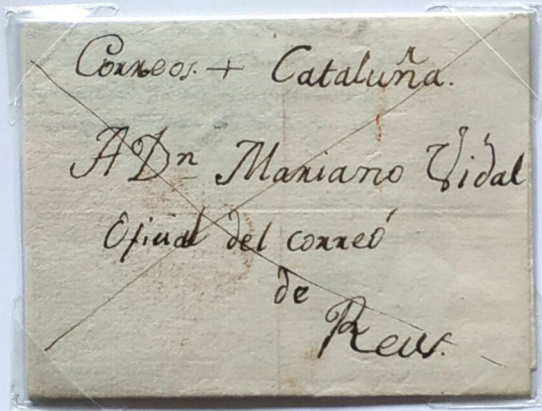 Correos. + Cataluña.
A Dn Mariano Vidal
Oficial del correo
de
Reus.